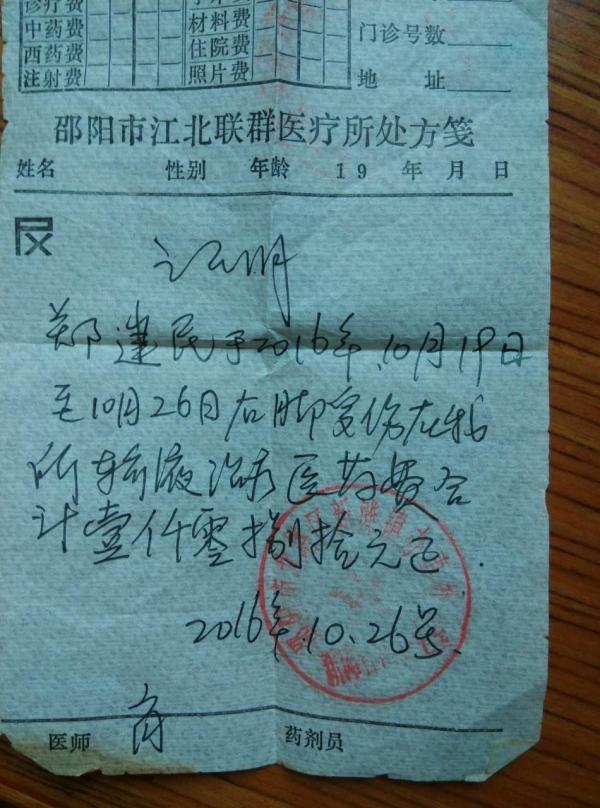 诊疗费
中药费 材料费 门诊号数
西药费 住院费
注射费 照片费 地 址
邵阳市江北联群医疗所处方笺
姓名 性别 年龄 19 年 月 日
证明
郑建民于2016年.10月19日
至10月26日右脚受伤在我
所输液治疗医药费合
计壹仟零捌拾元正.
2016年.10.26号.
医师 药剂员